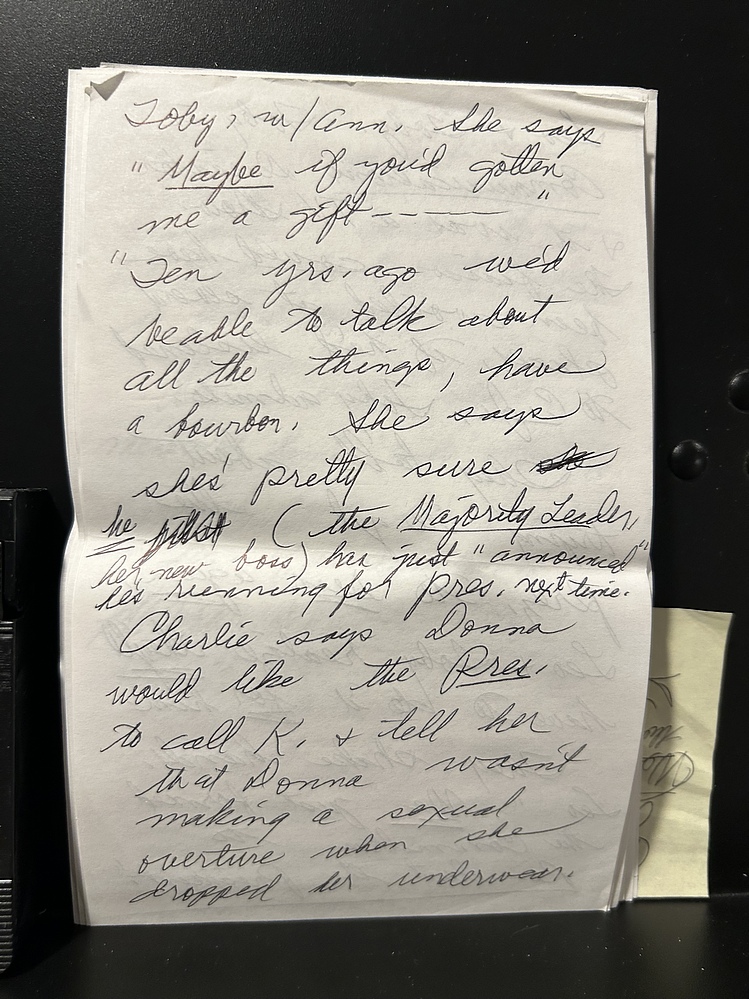 Toby, w/Ann. She says
"Maybe if you'd gotten
me a gift ----- "
"Ten yrs. ago we'd
be able to talk about
all the things, have
a bourbon. She says
she's pretty sure
he (the Majority Leader,
her new boss) has just "announced"
he's running for Pres. next time.
Charlie says Donna
would like the Pres.
to call K. & tell her
that Donna wasn't
making a sexual
overture when she
dropped her underwear.